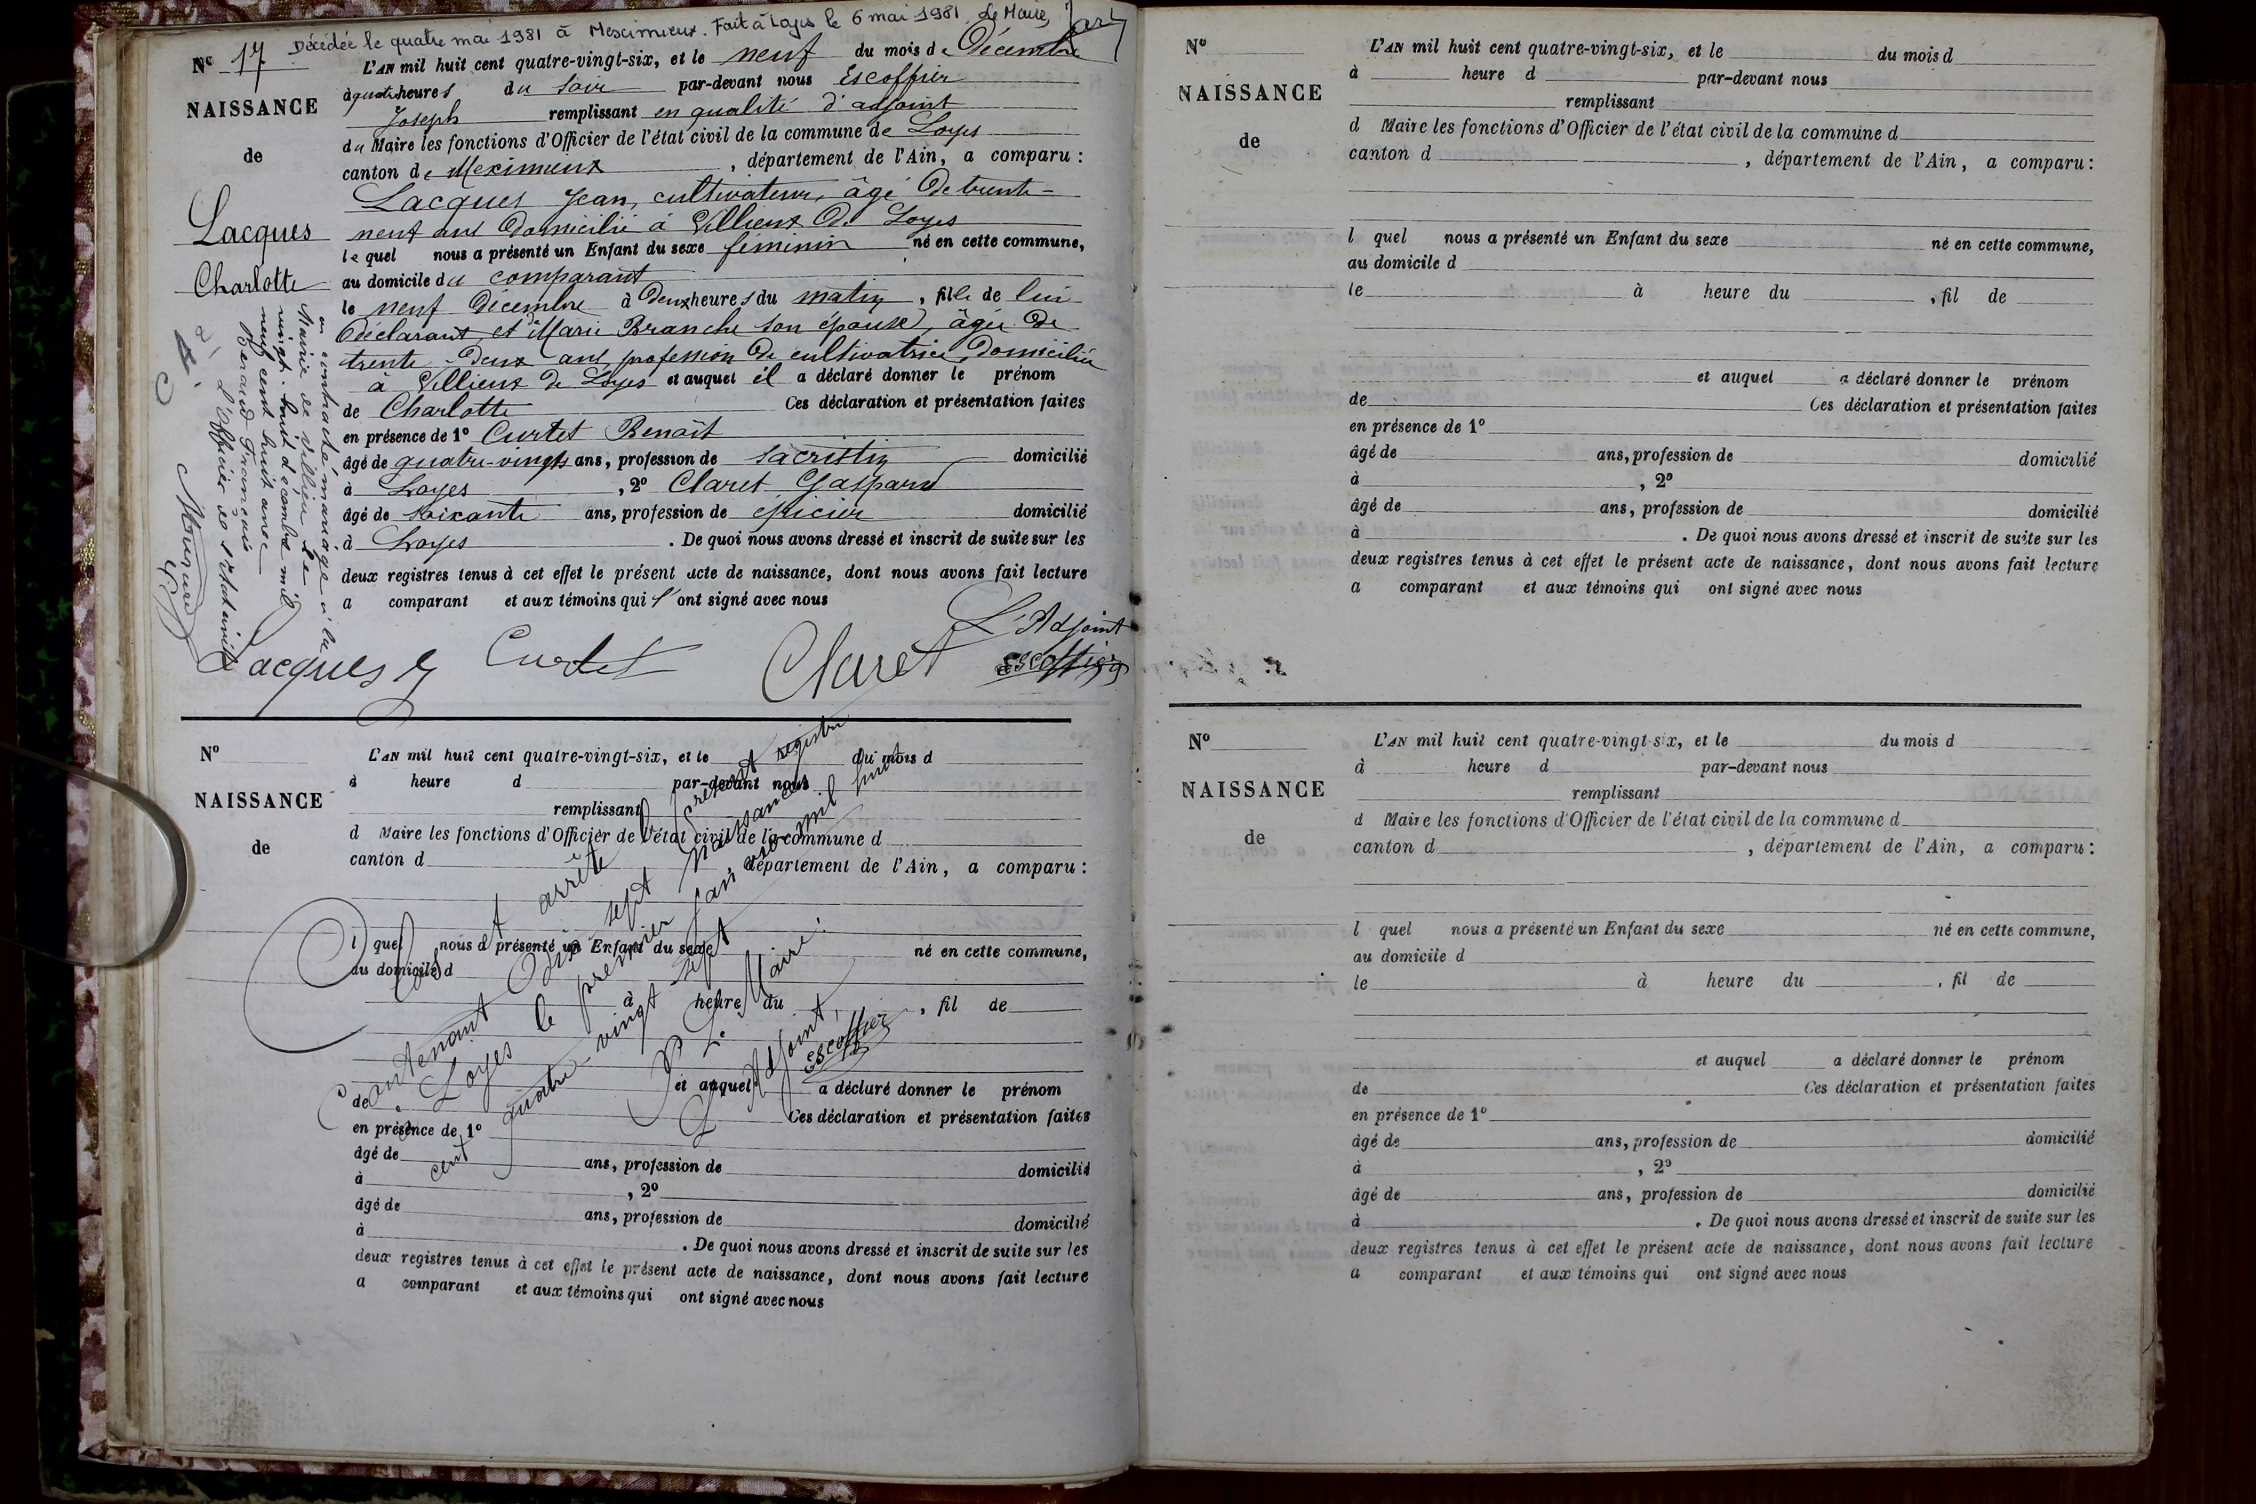 Décédée le quatre mai 1981 à Meximieux. Fait à Loyes le 6 mai 1981 Le Maire,
No 17
NAISSANCE
de
Lacques
Charlotte
L'AN mil huit cent quatre-vingt-six, et le neuf du mois de Décembre
à quatre heures du soir par-devant nous Escoffier
Joseph remplissant en qualité d'adjoint
du Maire les fonctions d'Officier de l'état civil de la commune de Loyes
canton de Meximieux, département de l'Ain, a comparu :
Lacques Jean, cultivateur, âgé de trente-
neuf ans domicilié à Villieux de Loyes
lequel nous a présenté un Enfant du sexe féminin né en cette commune,
au domicile du comparant
le neuf Décembre à deux heures du matin, fille de lui
déclarant, et de Marie Branche son épouse, âgée de
trente-deux ans, profession de cultivatrice, domiciliée
à Villieux de Loyes et auquel il a déclaré donner le prénom
de Charlotte Ces déclaration et présentation faites
en présence de 1o Curtet Benoît
âgé de quatre-vingts ans, profession de sacristin domicilié
à Loyes, 2o Claret Gaspard
âgé de soixante ans, profession de épicier domicilié
à Loyes. De quoi nous avons dressé et inscrit de suite sur les
deux registres tenus à cet effet le présent acte de naissance, dont nous avons fait lecture
a comparant et aux témoins qui l'ont signé avec nous
L'Adjoint
Lacques J Curtet Claret Escoffier
a contracté mariage à la
Mairie de Villieu le
vingt-huit décembre mil
neuf cent huit avec
Beraud François
L'Officier de l'état civil
No
NAISSANCE
de
L'AN mil huit cent quatre-vingt-six, et le du mois d
à heure d par-devant nous
remplissant
d Maire les fonctions d'Officier de l'état civil de la commune d
canton d département de l'Ain, a comparu :
l quel nous a présenté un Enfant du sexe né en cette commune,
au domicile d
à heure du , fil de
et auquel a déclaré donner le prénom
de Ces déclaration et présentation faites
en présence de 1o
âgé de ans, profession de domicilié
à , 2o
âgé de ans, profession de domicilié
à . De quoi nous avons dressé et inscrit de suite sur les
deux registres tenus à cet effet le présent acte de naissance, dont nous avons fait lecture
a comparant et aux témoins qui ont signé avec nous
Clos et arrêté le présent registre
contenant dix sept naissances
à Loyes le premier janvier mil huit
cent quatre-vingt sept
P Le Maire :
L'Adjoint,
Escoffier
No
NAISSANCE
de
L'AN mil huit cent quatre-vingt-six, et le du mois d
à heure d par-devant nous
remplissant
d Maire les fonctions d'Officier de l'état civil de la commune d
canton d , département de l'Ain, a comparu :
l quel nous a présenté un Enfant du sexe né en cette commune,
au domicile d
le à heure du , fil de
et auquel a déclaré donner le prénom
de Ces déclaration et présentation faites
en présence de 1o
âgé de ans, profession de domicilié
à , 2o
âgé de ans, profession de domicilié
à . De quoi nous avons dressé et inscrit de suite sur les
deux registres tenus à cet effet le présent acte de naissance, dont nous avons fait lecture
a comparant et aux témoins qui ont signé avec nous
No
NAISSANCE
de
L'AN mil huit cent quatre-vingt-six, et le du mois d
à heure d par-devant nous
remplissant
d Maire les fonctions d'Officier de l'état civil de la commune d
canton d , département de l'Ain, a comparu :
l quel nous a présenté un Enfant du sexe né en cette commune,
au domicile d
le à heure du , fil de
et auquel a déclaré donner le prénom
de Ces déclaration et présentation faites
en présence de 1o
âgé de ans, profession de domicilié
à , 2o
âgé de ans, profession de domicilié
à . De quoi nous avons dressé et inscrit de suite sur les
deux registres tenus à cet effet le présent acte de naissance, dont nous avons fait lecture
a comparant et aux témoins qui ont signé avec nous